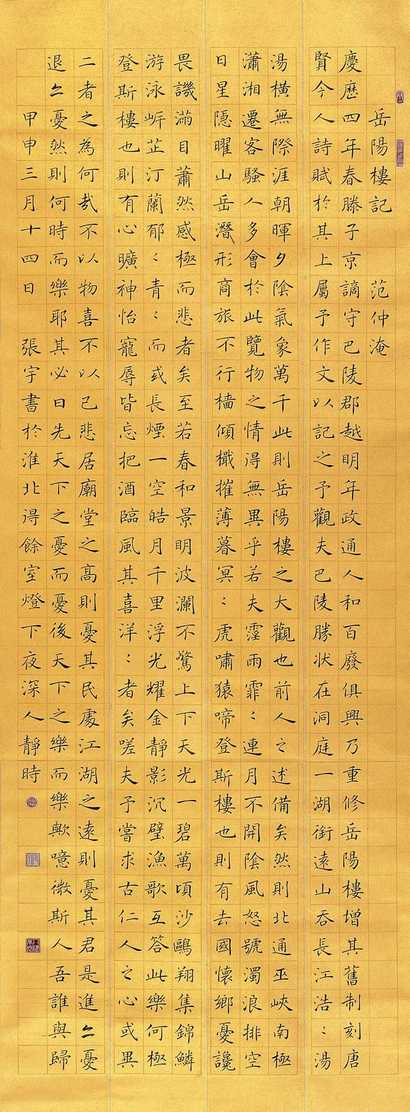 岳陽樓記 范仲淹
慶歷四年春滕子京謫守巴陵郡越明年政通人和百廢俱興乃重修岳陽樓增其舊制刻唐
賢今人詩賦於其上屬予作文以記之予觀夫巴陵勝狀在洞庭一湖銜遠山吞長江浩〻湯
湯橫無際涯朝暉夕陰氣象萬千此則岳陽樓之大觀也前人之述備矣然則北通巫峽南極
瀟湘遷客騷人多會於此覽物之情得無異乎若夫霪雨霏〻連月不開陰風怒號濁浪排空
日星隱曜山岳潛形商旅不行檣傾檝摧薄暮冥〻虎嘯猿啼登斯樓也則有去國懷鄉憂讒
畏譏滿目蕭然感極而悲者矣至若春和景明波瀾不驚上下天光一碧萬頃沙鷗翔集錦鱗
游泳岸芷汀蘭郁〻青〻而或長煙一空皓月千里浮光耀金靜影沉璧漁歌互答此樂何極
登斯樓也則有心曠神怡寵辱皆忘把酒臨風其喜洋〻者矣嗟夫予嘗求古仁人之心或異
二者之為何哉不以物喜不以己悲居廟堂之高則憂其民處江湖之遠則憂其君是進亦憂
退亦憂然則何時而樂耶其必曰先天下之憂而憂後天下之樂而樂歟噫微斯人吾誰與歸
甲申三月十四日 張宇書於淮北得餘室燈下夜深人靜時